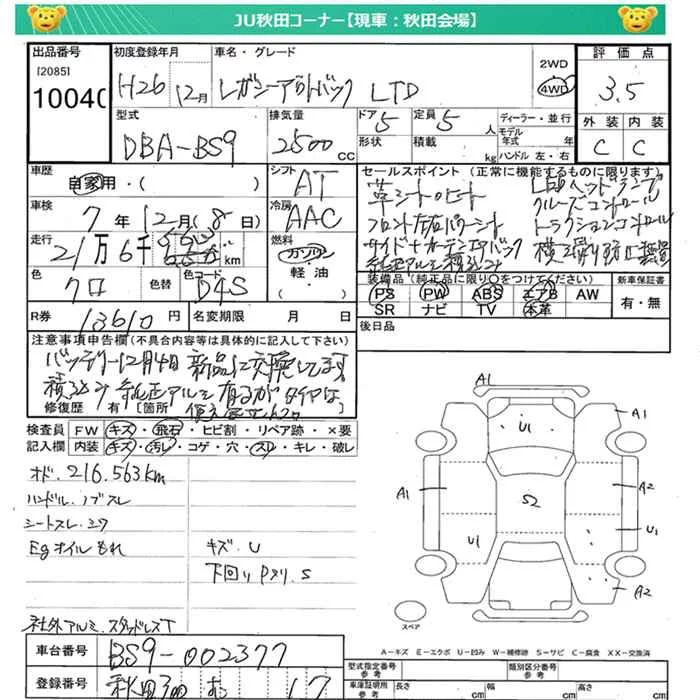 JU秋田コーナー【現車：秋田会場】
出品番号 初度登録年月 車名・グレード 2WD 評価点
[2085]
H26 12月 レガシーアウトバック LTD 4WD 3.5
型式 排気量 ドア 定員 ディーラー・並行 外装 内装
DBA-BS9 2500 CC 5 5 人 モデル年式 年 C C
形状 積載 kg ハンドル 左・右
車歴 シフト セールスポイント(正常に機能するものに限ります)
自家用・( ) AT 革シートヒート LEDヘッドランプ
車検 冷房 クルーズコントロール
7年12月(8日) AAC フロント左右パワーシート トラクションコントロール
走行 燃料 サイド+カーテンエアバック
21万6千 km ガソリン
色 色替 色コード 軽油・ 装備品(純正品に限り○をつけてください) 新車保証書
クロ D4S ( ) PS PW ABS エアB AW 有・無
SR ナビ TV 本革
R券 13610円 名変期限 月 日 後日品
注意事項申告欄(不具合内容等は具体的に記入して下さい)
バッテリー12月4日 新品に交換してます
積込み 純正アルミ有るがタイヤは
修復歴 有 [箇所
検査員 FW キズ・飛石・ヒビ割・リペア跡・×要
記入欄 内装 キズ・汚レ・コゲ・穴・スレ・キレ・破レ
オド.216.563km
ハンドル.ノブスレ
シートスレ.シワ
Egオイルもれ キズ.U
下回りPスリ.S
社外アルミ.スタッドレスT
A1
U1 A1
A1 S2 A2
U1 U1
A2
スペア
A－キズ E－エクボ U－凹み W－補修跡 S－サビ C－腐食 XX－交換済
車台番号 BS9-002377
登録番号 秋田300 む 17
型式指定番号 類別区分番号
車庫証明用参考 長さ cm 幅 cm 高さ cm